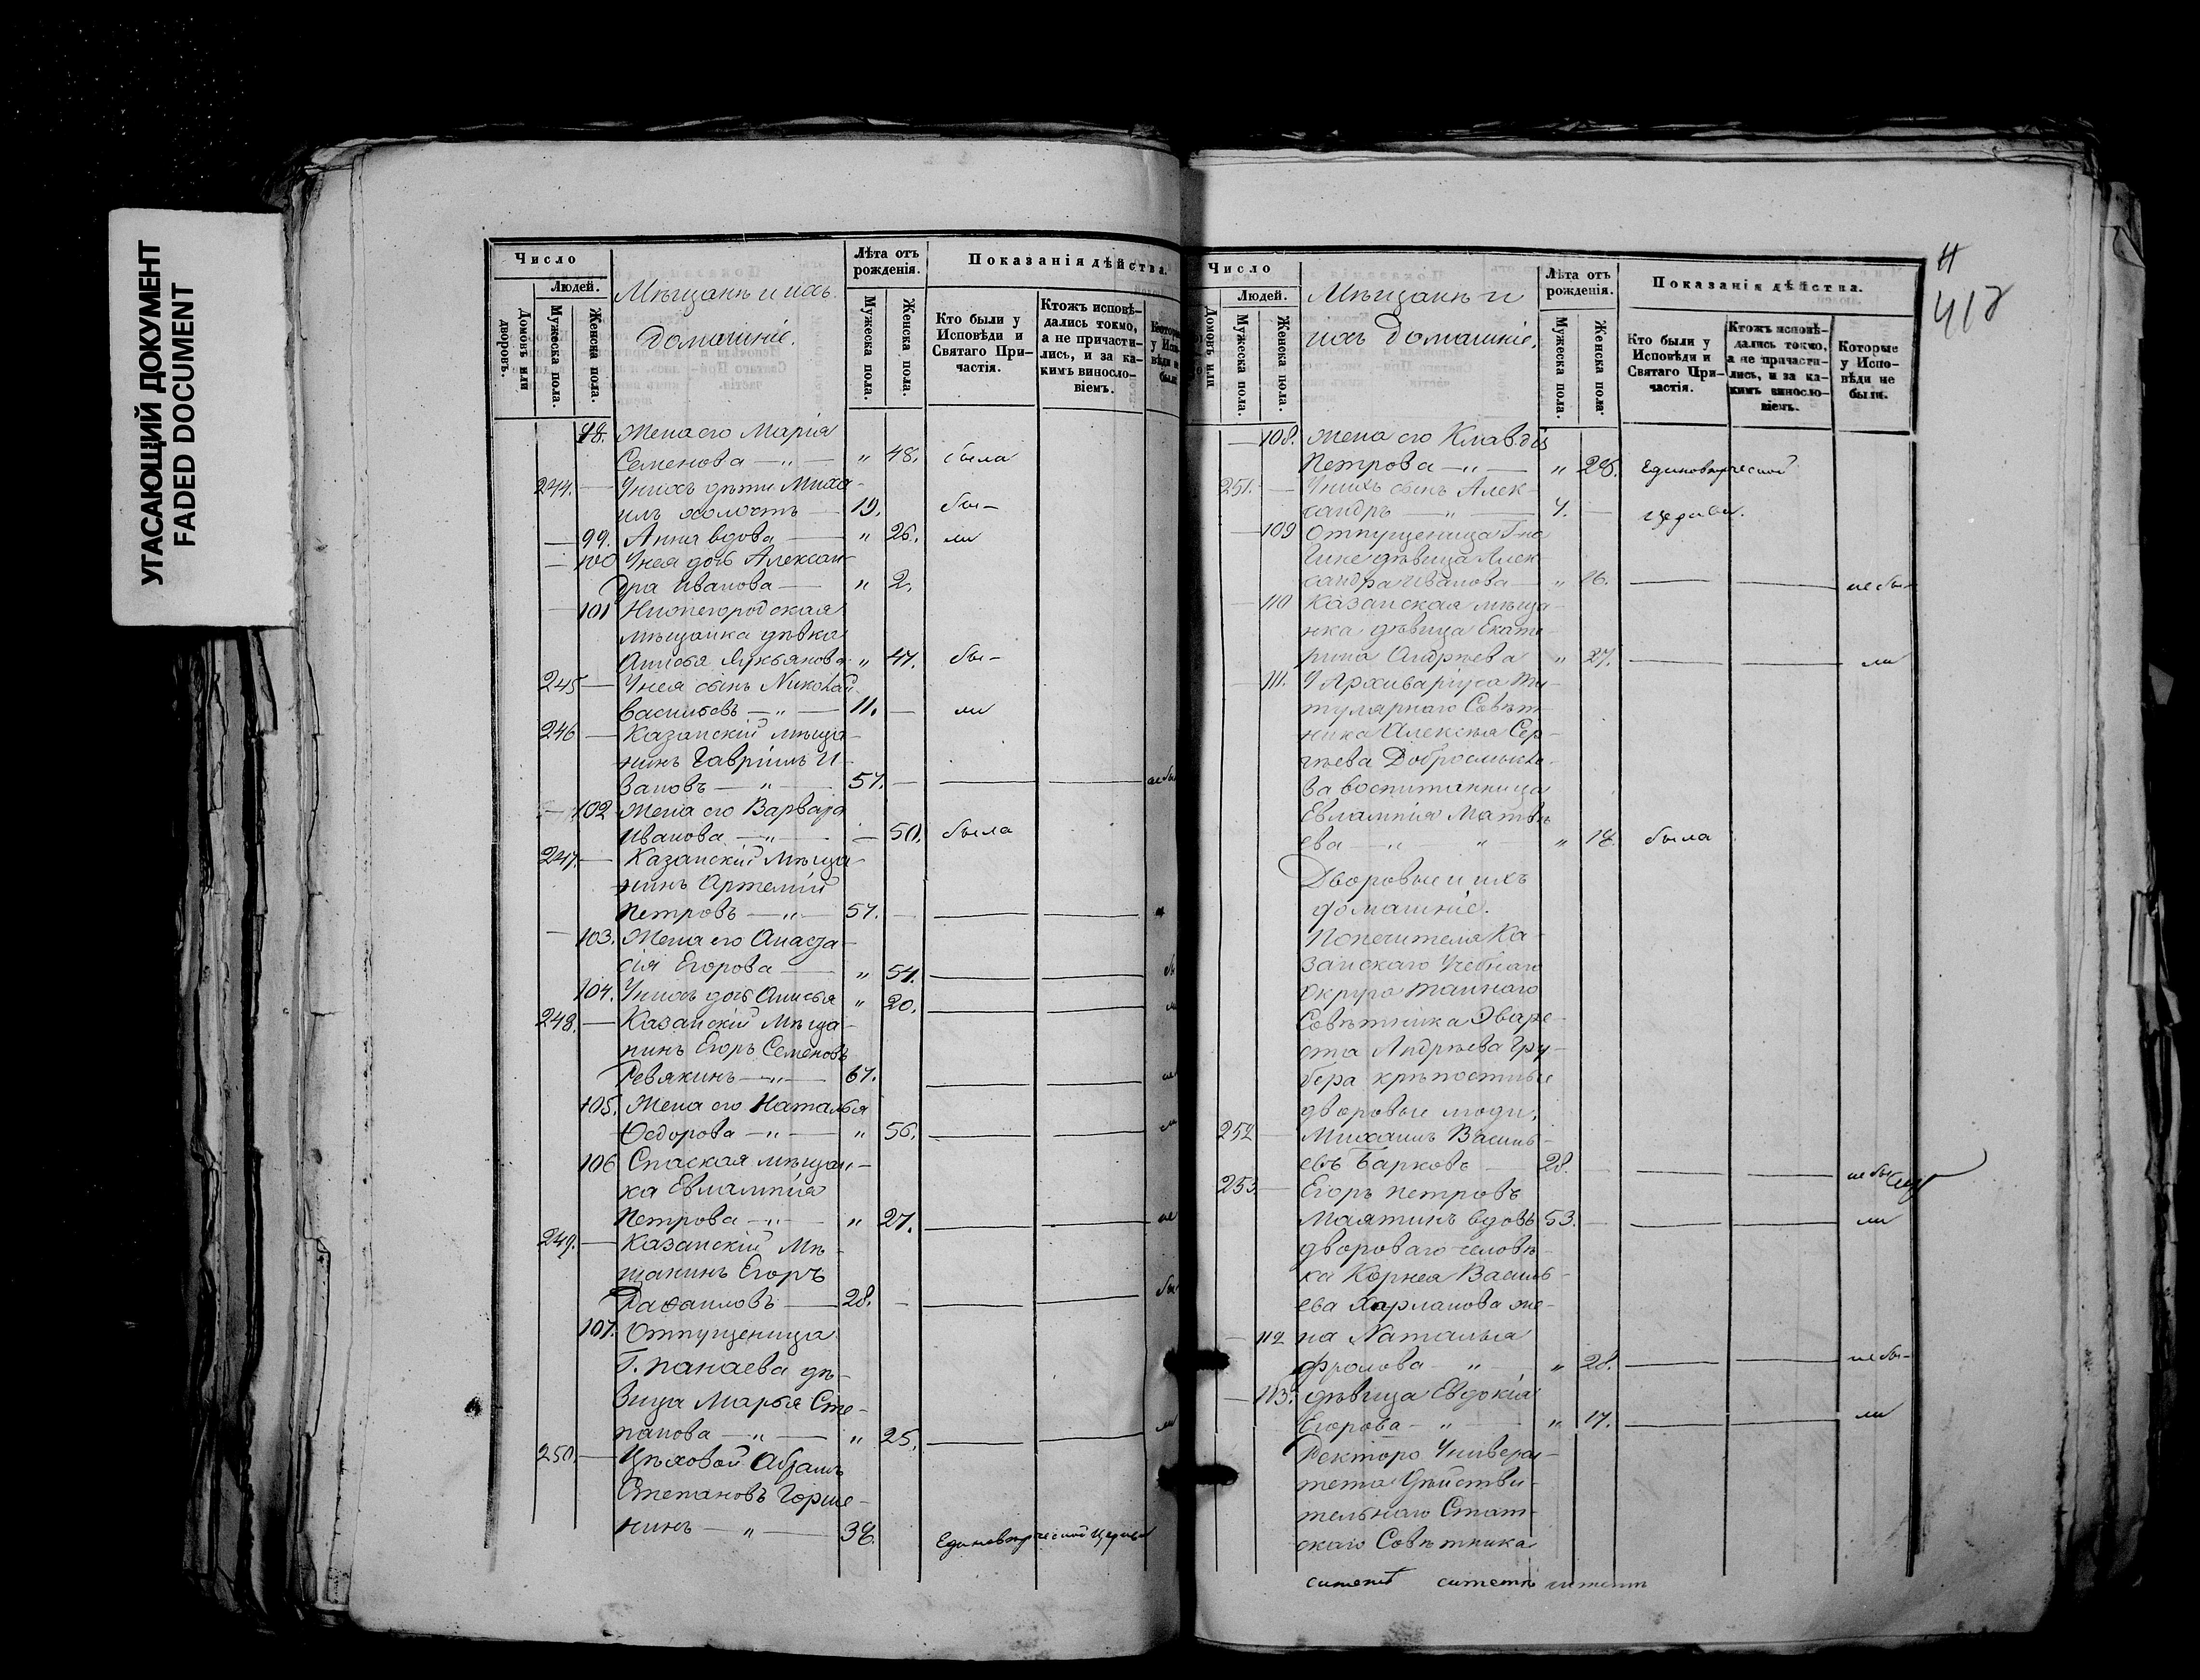 УГАСАЮЩИЙ ДОКУМЕНТ
FADED DOCUMENT
Число
Людей.
Домовъ или дворовъ.
Мужеска пола.
Женска пола.
Мѣщане и ихъ
домашніе.
Лѣта отъ рожденія.
Мужеска пола.
Женска пола.
Показанія дѣйства.
Кто были у Исповѣди и Святаго Причастія.
Ктожъ исповѣдались токмо, а не причастились, и за какимъ винословіемъ.
98. Жена его Марія
Семенова — „ — „ 48. была
244. — У нихъ дѣти Миха-
илъ холостъ — 19. бы-
— 99. Анна вдова — „ 26. ли
— 100 У нея дочь Алексан-
дра Иванова — „ 2.
— 101 Нижегородская
мѣщанка дѣвка
Анисья Лукьянова „ 47. бы-
245 — У нея сынъ Николай
Васильевъ — „ — 11. — ли
246 — Казанскій мѣща-
нинъ Гавріилъ И-
вановъ — „ — 57. — не бы
— 102 Жена его Варвара
Иванова — „ — 50. была
247. — Казанскій Мѣща-
нинъ Артемій
Петровъ — „ — 57. —
— 103. Жена его Анаста-
сія Егорова — „ 54. бы
104. У нихъ дочь Анисья „ 20.
248. — Казанскій Мѣща-
нинъ Егоръ Семеновъ
Ревякинъ — „ — 67.
105. Жена его Наталья
Ѳедорова — „ — „ 56.
106 Спаская мѣщан-
ка Евлампія
Петрова — „ — „ 27.
249. — Казанскій Мѣ-
щанинъ Егоръ
Рафаиловъ — 28. — бы
107. Отпущеница
Г. Панаева дѣ-
вица Марья Сте-
панова — „ — „ 25. ли
250. — Цѣховой Абрамъ
Степановъ Горше-
нинъ — „ — 38. Единовѣрческой Церкви
Число
Людей.
Домовъ или
Мужеска пола.
Женска пола.
Мѣщане и
ихъ домашніе.
Лѣта отъ рожденія.
Мужеска пола.
Женска пола
Показанія дѣйства.
Кто были у Исповѣди и Святаго Причастія.
Ктожъ исповѣдались токмо, а не причастились, и за какимъ винословіемъ.
Которые у Исповѣди не были.
— 108. Жена его Клавдія
Петрова — „ — „ 28. Единовѣрческой
251. — У нихъ сынъ Алек-
сандръ — „ — 4. — Церкви.
— 109 Отпущеница
дѣвица Алек
сандра Иванова — „ 26. не бы-
— 110 Казанская мѣща-
нка дѣвица Екате-
рина Андреева „ 27. ли
— 111. У Архиваріуса Ти-
тулярнаго Совѣт-
ника Алексѣя Сер-
гѣева Добросмысло-
ва воспитанница
Евлампія Матвѣ
ева — „ — „ — „ 18. была
Дворовые и ихъ
домашніе.
Попечителя Ка-
занскаго Учебнаго
Округа Тайнаго
Совѣтника Эваре-
ста Андреева Гру-
бера крѣпостные
дворовые люди.
252 — Михаилъ Василь-
евъ Барковъ — 28. — не бы
253 — Егоръ Петровъ
Маятинъ вдовъ 53. — ли
двороваго человѣ-
ка Корнея Василь-
ева Харланова же-
— 112 на Наталья
Фролова — „ — „ 28. не бы-
— 113. дѣвица Евдокія
Егорова — „ — „ 17. ли
Ректора Универси-
тета Дѣйстви-
тельнаго Стат-
скаго Совѣтника